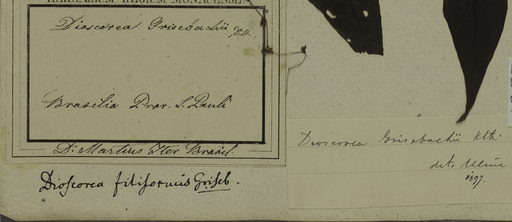 HERBARIUM REGIUM MONACENSE
Dioscorea Grisebachii Kth.
Brasilia Prov. S. Pauli
D. Martius Iter Brasil.
Dioscorea filiformis Griseb.
Dioscorea Grisebachii Kth.
det. Uline
1897.